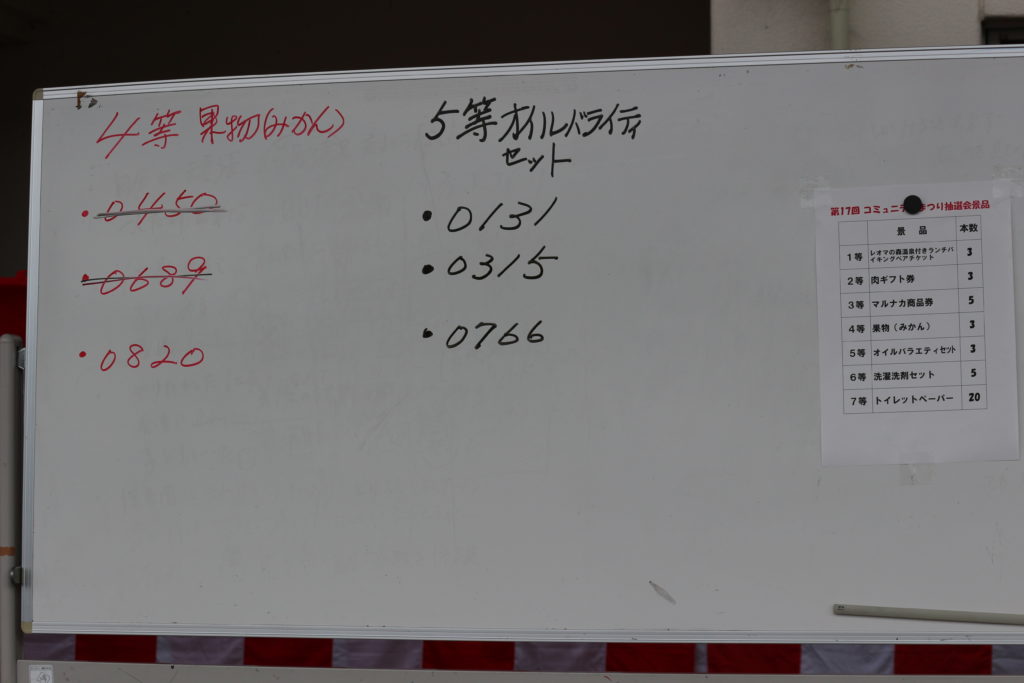 4等 果物(みかん)
・0450
・0689
・0820
5等オイルバライティ
セット
・0131
・0315
・0766
第17回 コミュニテ まつり抽選会景品
景 品 本数
1等 レオマの森温泉付きランチバ
イキングペアチケット 3
2等 肉ギフト券 3
3等 マルナカ商品券 5
4等 果物(みかん) 3
5等 オイルバラエティセット 3
6等 洗濯洗剤セット 5
7等 トイレットペーパー 20